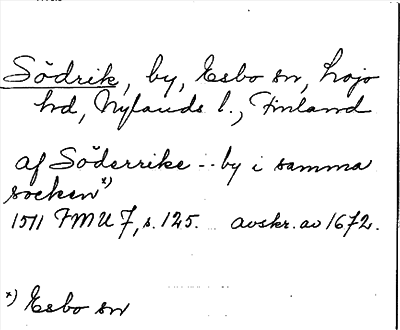 Södrik, by, Esbo sn, Lojo
hd, Nylands l., Finland
af Söderrike - by i samma
socken*)
1511 FMU 7, s. 125. avskr. av 1672.
*) Esbo sn